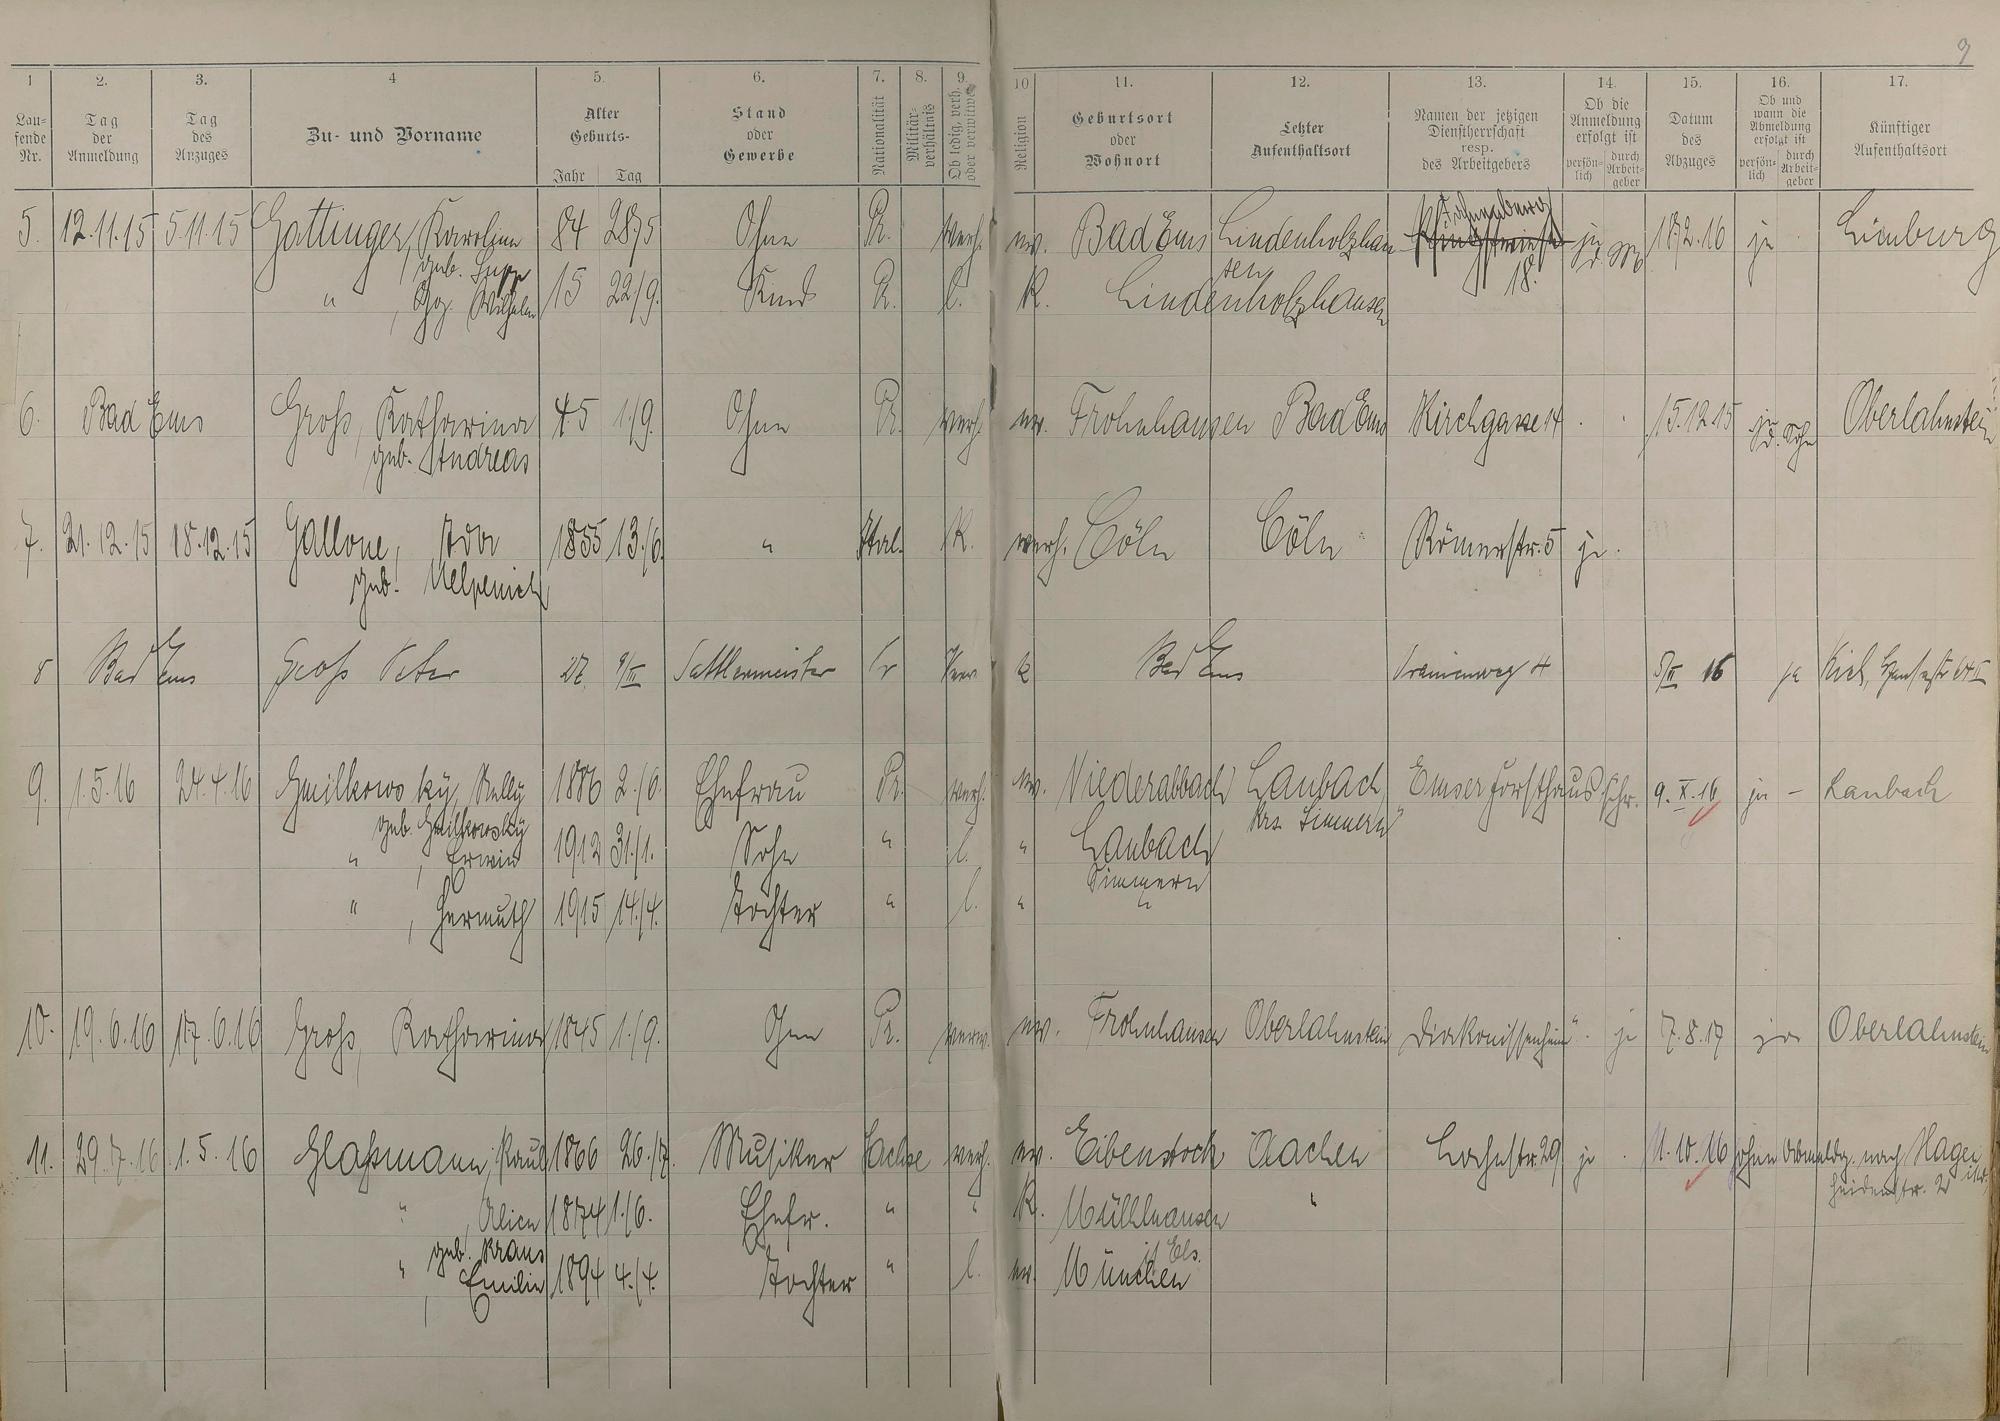 9
1 2. 3. 4 5. 6. 7. 8. 9. 10 11. 12. 13. 14. 15. 16. 17.
Lau- fende Nr. Tag der Anmeldung Tag des Anzuges Zu- und Vorname Alter Geburts- Jahr Tag Stand oder Gewerbe Nationalität Militär- verhältnis Ob ledig, verh. oder verwitwet Religion Geburtsort oder Wohnort Letzter Aufenthaltsort Namen der jetzigen Dienstherrschaft resp. des Arbeitgebers Ob die Anmeldung erfolgt ist persön- lich durch Arbeit- geber Datum des Abzuges Ob und wann die Abmeldung erfolgt ist persön- lich durch Arbeit- geber Künftiger Aufenthaltsort
5. 12.11.15 5.11.15 Gattinger, Karoline 84 28/5 Ohne Pr. verh. ev. Bad Ems Lindenholzhau 18/2.16 ja Limburg
geb. sen 18.
" , Wilhelm 15 22/9. Kind Pr. l. K. Lindenholzhausen
6. Bad Ems Groß, Katharina 45 1/9. Ohne Pr. verh. ev. Frohnhausen Bad Ems Kirchgasse 14 15.12.15 Oberlahnstein
geb. Andreas
7. 21.12.15 18.12.15 Gallone, Ada 1855 13./6. " Ital. K. verh. Cöln Cöln Römerstr. 5 ja.
geb. Nelpenich
8 Bad Ems Groß Peter 27. 9/III Sattlermeister Pr Verh K Bad Ems Oranienweg 4 16 ja Kiel,
9. 1.5.16 24.4.16 Gmilkowsky, Nelly 1886 2./6. Ehefrau Pr. verh. ev. Niederabbach Laubach, Emser Forsthaus schr. 9.X.16 ja – Laubach
geb. Gmilkowsky Krs. Simmern
" , Erwin 1912 31./1. Sohn " l. " Laubach
Simmern
" , Hermuth 1915 14./4. Tochter " l. " "
10. 19.6.16 17.6.16 Groß, Katharina 1845 1./9. Ohne Pr. verw. ev. Frohnhausen Oberlahnstein Diakonissenheim ja 7.8.17 ja Oberlahnstein
11. 29.7.16 1.5.16 Glaßmann, Paul 1866 26./7. Musiker Sachse verh. ev. Eibenstock Aachen Lahnstr. 29 ja 11.10.16 ohne Abmeldg. nach Hagen
Heidenstr. 2
" , Alice 1874 1./6. Ehefr. " " K. Mülhausen "
geb. Kraus i. Els.
" , Emilie 1894 4./4. Tochter " l. ev. München